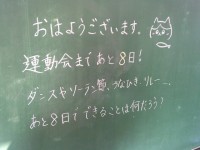 おはようございます。
運動会まであと8日!
ダンスやソーラン節、つなひき、リレー…。
あと8日でできることは何だろう?